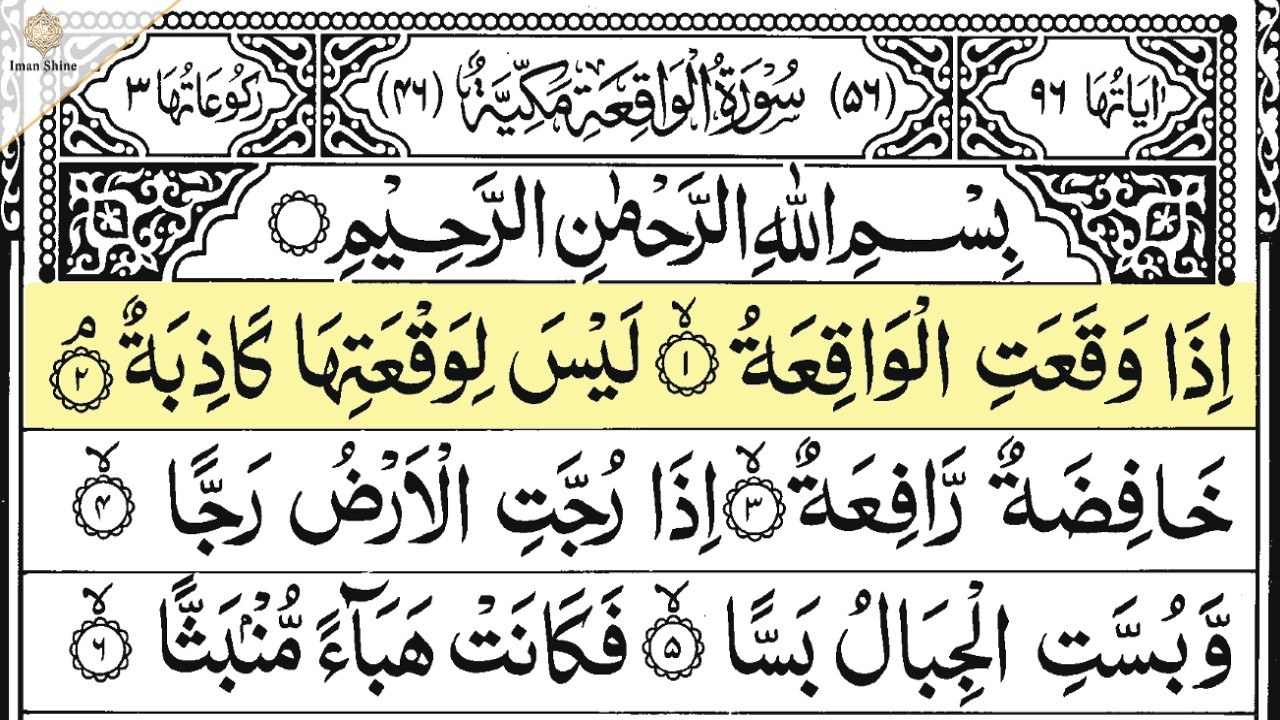 Iman Shine
اٰيَاتُهَا ٩٦ (٥٦) سُوْرَةُ الْوَاقِعَةِ مَكِّيَّةٌ (٤٦) رُكُوْعَاتُهَا ٣
بِسْمِ اللّٰهِ الرَّحْمٰنِ الرَّحِيْمِ
اِذَا وَقَعَتِ الْوَاقِعَةُ ۙ ١ لَيْسَ لِوَقْعَتِهَا كَاذِبَةٌ ۘ ٢
خَافِضَةٌ رَّافِعَةٌ ۙ ٣ اِذَا رُجَّتِ الْاَرْضُ رَجًّا ۙ ٤
وَّبُسَّتِ الْجِبَالُ بَسًّا ۙ ٥ فَكَانَتْ هَبَآءً مُّنْۢبَثًّا ۙ ٦